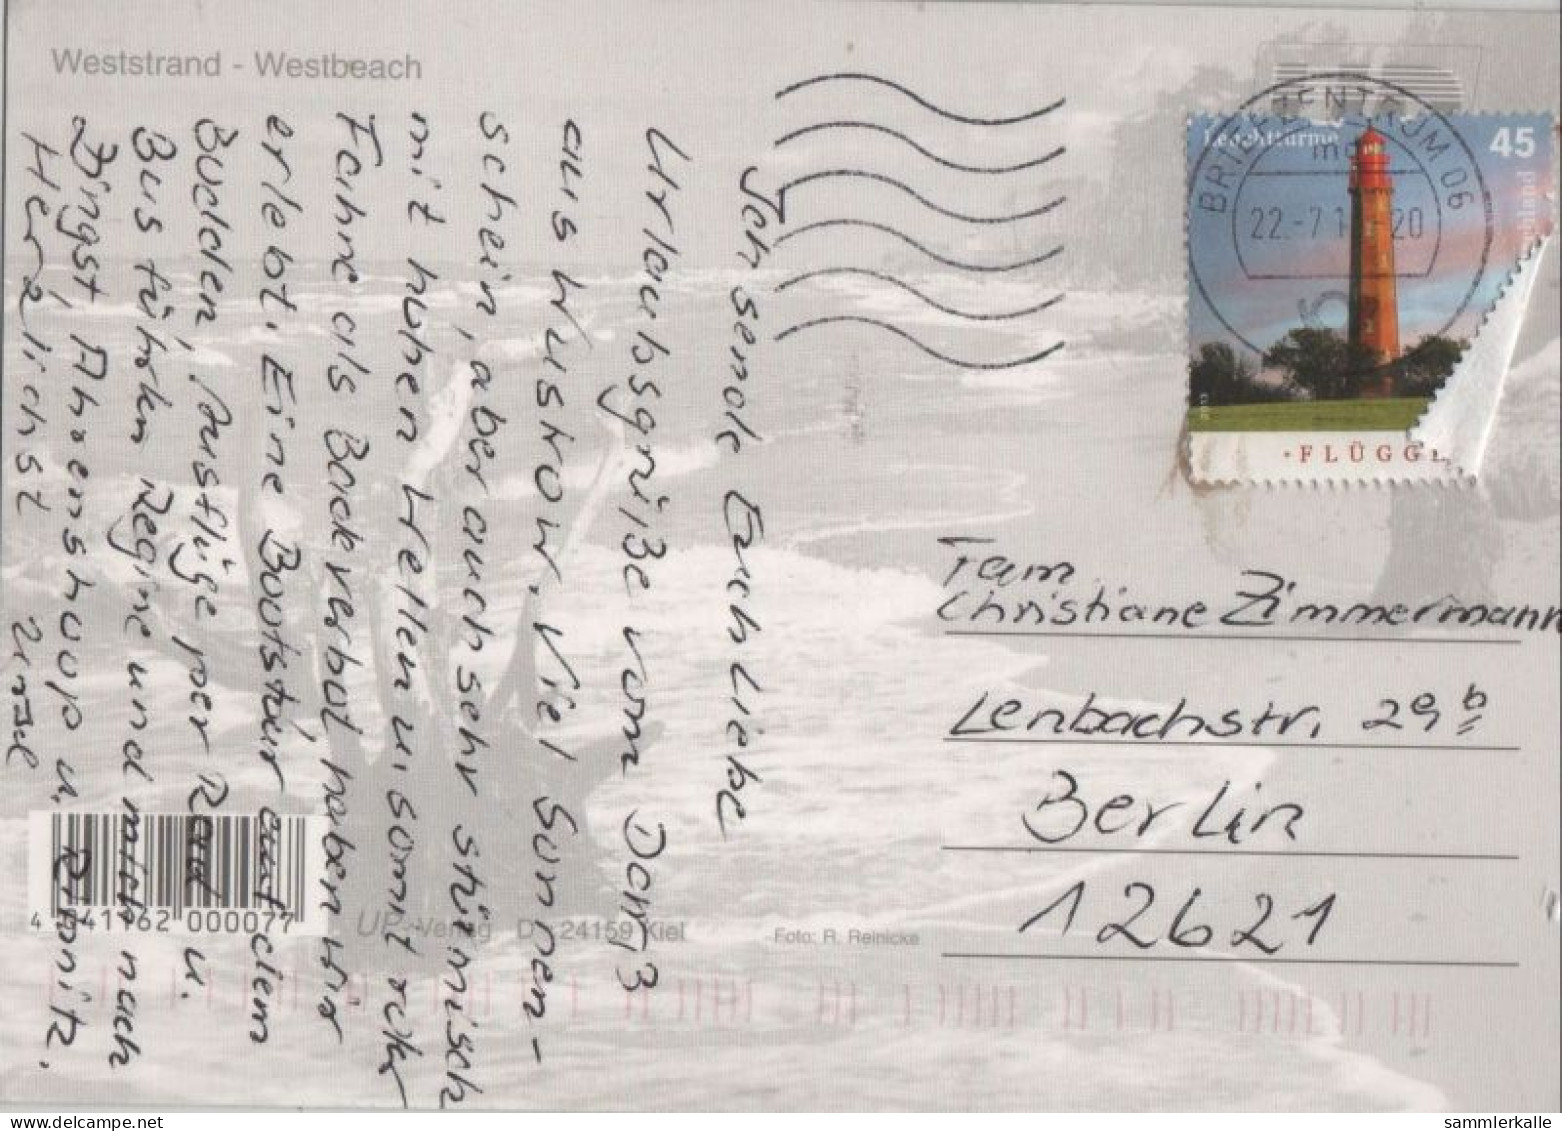 Weststrand - Westbeach
Ich sende Euch Liebe
Urlaubsgrüße vom Dorf 3
aus Wustrow. Viel Sonnen-
schein, aber auch sehr stürmisch
mit hohen Wellen u. somit roter
Fahne als Badeverbot haben wir
erlebt. Eine Bootstour auf dem
Bodden, Ausflüge per Rad u.
Bus führten Regine und mich nach
Zingst, Ahrenshoop u. Ribnitz.
Herzlichst
Leuchttürme
45
FLÜGGE
2013
BRIEFZENTRUM 06
22.-7.1 -20
Fam.
Christiane Zimmermann
Lenbachstr. 29 b
Berlin
12621
4 041162 000077
Verlag D - 24159 Kiel
Foto: R. Reinicke
sammlerkalle